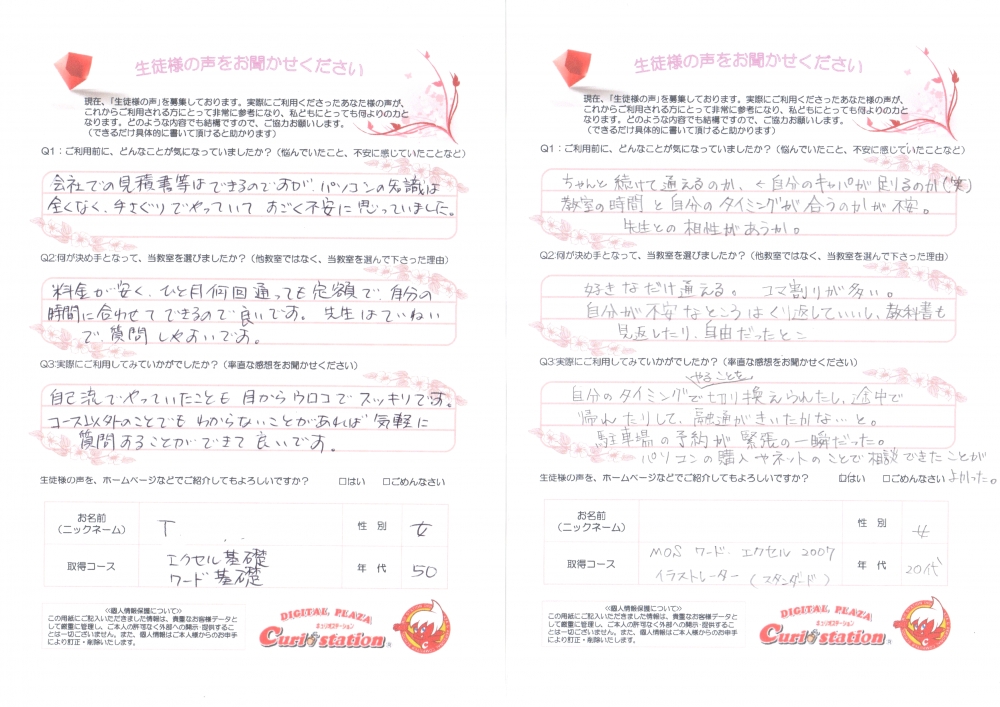 生徒様の声をお聞かせください
現在、「生徒様の声」を募集しております。実際にご利用くださったあなた様の声が、
これからご利用される方にとって非常に参考になり、私どもにとっても何よりの力と
なります。どのような内容でも結構ですので、ご協力お願いします。
（できるだけ具体的に書いて頂けると助かります）
Q1：ご利用前に、どんなことが気になっていましたか？（悩んでいたこと、不安に感じていたことなど）
会社での見積書等はできるのですが、パソコンの知識は
全くなく、手さぐりでやっていて すごく不安に思っていました。
Q2:何が決め手となって、当教室を選びましたか？（他教室ではなく、当教室を選んで下さった理由）
料金が安く、ひと月何回通っても定額で、自分の
時間に合わせてできるので良いです。先生はていねい
で質問しやすいです。
Q3:実際にご利用してみていかがでしたか？（率直な感想をお聞かせください）
自己流でやっていたことも目からウロコでスッキリです。
コース以外のことでもわからないことがあれば気軽に
質問することができて良いです。
生徒様の声を、ホームページなどでご紹介してもよろしいですか？ □はい □ごめんなさい
お名前
（ニックネーム）
T
性 別
女
取得コース
エクセル基礎
ワード基礎
年 代
50
<<個人情報保護について>>
この用紙にご記入いただきました情報は、貴重なお客様データと
して厳重に管理し、ご本人の許可なく外部への開示・提供するこ
とは一切ございません。また、個人情報はご本人様からのお申手
により訂正・削除いたします。
DIGITAL PLAZA
キュリオステーション
Curio station
生徒様の声をお聞かせください
現在、「生徒様の声」を募集しております。実際にご利用くださったあなた様の声が、
これからご利用される方にとって非常に参考になり、私どもにとっても何よりの力と
なります。どのような内容でも結構ですので、ご協力お願いします。
（できるだけ具体的に書いて頂けると助かります）
Q1：ご利用前に、どんなことが気になっていましたか？（悩んでいたこと、不安に感じていたことなど）
ちゃんと続けて通えるのか、←自分のキャパが足りるのか（笑）
教室の時間と自分のタイミングが合うのかが不安。
先生との相性があうか。
Q2:何が決め手となって、当教室を選びましたか？（他教室ではなく、当教室を選んで下さった理由）
好きなだけ通える。 コマ割りが多い。
自分が不安なところはくり返していいし、教科書も
見返したり、自由だったとこ
Q3:実際にご利用してみていかがでしたか？（率直な感想をお聞かせください）
やることを
自分のタイミングで切り換えられたし、途中で
帰れたりして、融通がきいたかな…と。
駐車場の予約が緊張の一瞬だった。
パソコンの購入やネットのことで相談できたことが
よかった。
生徒様の声を、ホームページなどでご紹介してもよろしいですか？ ☑はい □ごめんなさい
お名前
（ニックネーム）
性 別
女
取得コース
MOS ワード、エクセル 2007
イラストレーター（スタンダード）
年 代
20代
<<個人情報保護について>>
この用紙にご記入いただきました情報は、貴重なお客様データと
して厳重に管理し、ご本人の許可なく外部への開示・提供するこ
とは一切ございません。また、個人情報はご本人様からのお申手
により訂正・削除いたします。
DIGITAL PLAZA
キュリオステーション
Curio station